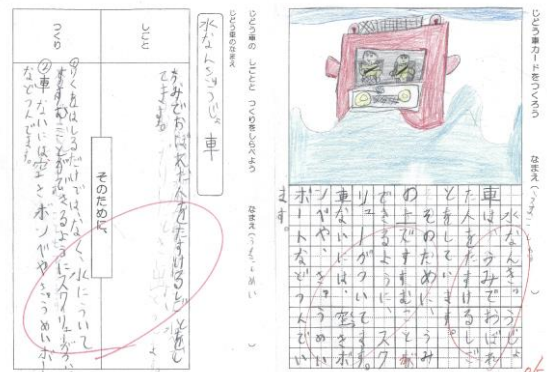 じどう車カードをつくろう
なまえ（
）
水なんきゅうじょ
車は、うみでおぼれ
た人をたすけるしご
とをしています。
そのために、うみ
の上ですすむことが
できるように、スク
リューがついてます。
車ないには、空きボ
ンベや、きゅうめい
ボートなどつんでい
ます。
じどう車の しごとと つくりをしらべよう
なまえ（
）
じどう車のなまえ
水なんきゅうじょ 車
しごと
うみでおぼれた人をたすけるしごと
てきます。
そのために、
つくり
①りくをはしるだけでは、なく、水について
すすむことができるようにスクリューがつい
②車ないには空きボンベや、きゅうめいボー
などつんでます。